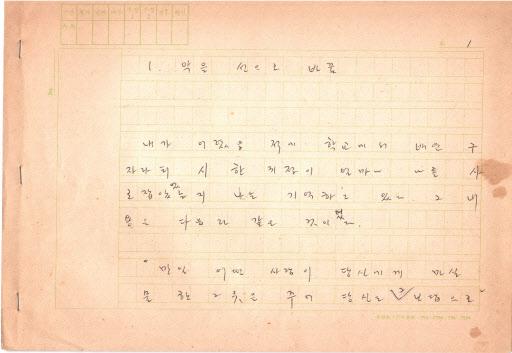 1
1. 악을 선으로 바꿈
내가 어렸을 적에 학교에서 배운 구
자라티 시 한 귀절이 얼마나 나를 사
로잡았는지 나는 기억하고 있는 그 내
용은 다음과 같은 것이었다.
"만일 어떤 사람이 당신에게 마실
물 한 그릇을 주어 당신도 그 보답으로